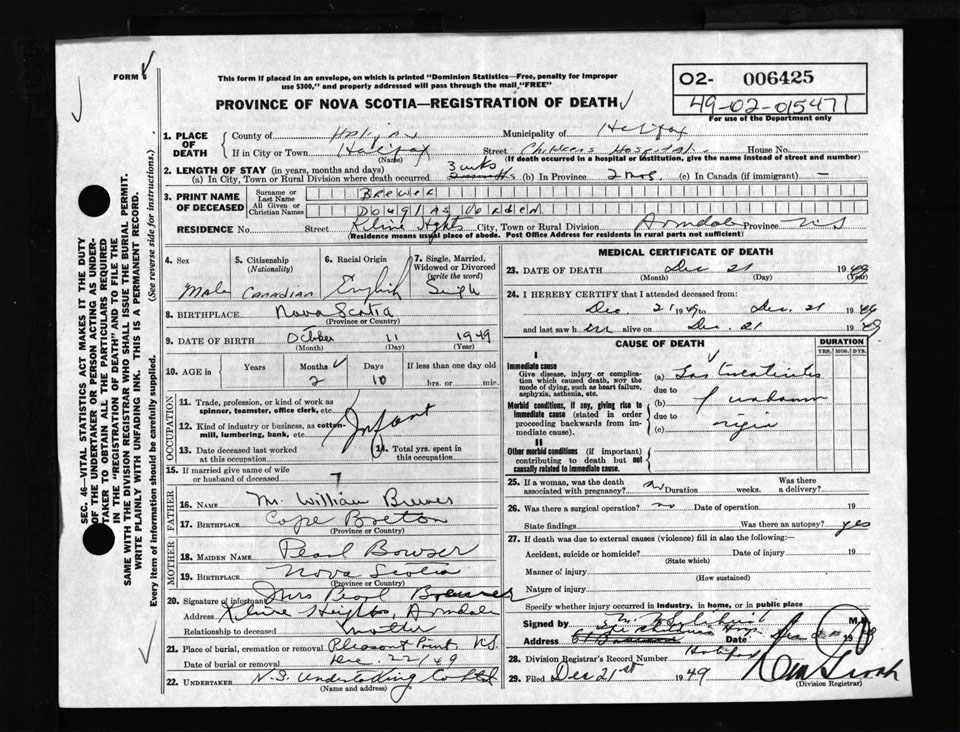 FORM
This form if placed in an envelope, on which is printed "Dominion Statistics—Free, penalty for improper
use $300," and properly addressed will pass through the mail "FREE"
O2- 006425
49-02-015471
For use of the Department only
PROVINCE OF NOVA SCOTIA—REGISTRATION OF DEATH
1. PLACE OF DEATH
County of Halifax Municipality of Halifax
If in City or Town Halifax Street Childrens Hospital House No.
(Name) (If death occurred in a hospital or institution, give the name instead of street and number)
2. LENGTH OF STAY (in years, months and days)
(a) In City, Town or Rural Division where death occurred 3 wks (b) In Province 2 mos. (c) In Canada (if immigrant) —
3. PRINT NAME OF DECEASED
Surname or Last Name BREWER
All Given or Christian Names DOUGLAS VERDEN
RESIDENCE No. Street Kline Hghts City, Town or Rural Division Armdale Province N S
(Residence means usual place of abode. Post Office Address for residents in rural parts not sufficient)
4. Sex Male
5. Citizenship (Nationality) Canadian
6. Racial Origin English
7. Single, Married, Widowed or Divorced (write the word) Single
8. BIRTHPLACE Nova Scotia
(Province or Country)
9. DATE OF BIRTH October 11 1949
(Month) (Day) (Year)
10. AGE in Years Months 2 Days 10 If less than one day old hrs. or min.
OCCUPATION
11. Trade, profession or kind of work as spinner, teamster, office clerk, etc.
12. Kind of industry or business, as cotton-mill, lumbering, bank, etc. Infant
13. Date deceased last worked at this occupation
14. Total yrs. spent in this occupation
15. If married give name of wife or husband of deceased
FATHER
16. NAME Mr. William Brewer
17. BIRTHPLACE Cape Breton
(Province or Country)
MOTHER
18. MAIDEN NAME Pearl Bowser
19. BIRTHPLACE Nova Scotia
(Province or Country)
20. Signature of informant Mrs Pearl Brewer
Address Kline Heights, Armdale
Relationship to deceased mother
21. Place of burial, cremation or removal Pleasant Point N.S.
Date of burial or removal Dec. 22/49
22. UNDERTAKER N.S. Undertaking Co Ltd
(Name and address)
MEDICAL CERTIFICATE OF DEATH
23. DATE OF DEATH Dec 21 1949
(Month) (Day)
24. I HEREBY CERTIFY that I attended deceased from
Dec 21 1949 to Dec. 21 1949
and last saw him alive on Dec. 21 1949
CAUSE OF DEATH
DURATION
YRS. MOS. DYS.
I
Immediate cause
Give disease, injury or complication which caused death, NOT the mode of dying, such as heart failure, asphyxia, asthenia, etc.
(a) Gastroenteritis
due to
Morbid conditions, if any, giving rise to immediate cause (stated in order proceeding backwards from immediate cause).
(b) of unknown
due to
(c) origin
II
Other morbid conditions (if important) contributing to death but not causally related to immediate cause.
25. If a woman, was the death associated with pregnancy? no Duration weeks. Was there a delivery?
26. Was there a surgical operation? no Date of operation 19
State findings Was there an autopsy? yes
27. If death was due to external causes (violence) fill in also the following:—
Accident, suicide or homicide? Date of injury 19
(State which)
Manner of injury
(How sustained)
Nature of injury
Specify whether injury occurred in industry, in home, or in public place
Signed by M.D.
Address Date Dec 19
Halifax
28. Division Registrar's Record Number
29. Filed Dec 21st 1949
(Division Registrar)
SEC. 46—VITAL STATISTICS ACT MAKES IT THE DUTY
OF THE UNDERTAKER OR PERSON ACTING AS UNDER-
TAKER TO OBTAIN ALL THE PARTICULARS REQUIRED
IN THE "REGISTRATION OF DEATH" AND TO FILE THE
SAME WITH THE DIVISION REGISTRAR WHO SHALL ISSUE THE BURIAL PERMIT.
WRITE PLAINLY WITH UNFADING INK. THIS IS A PERMANENT RECORD.
Every item of information should be carefully supplied. (See reverse side for instructions.)